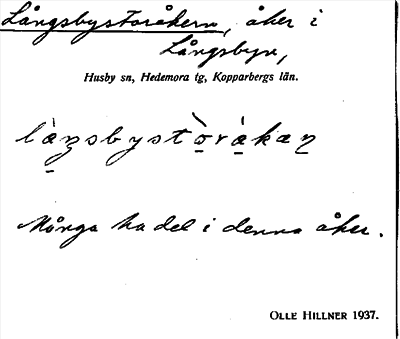 Långsbystoråkern, åker i
Långsbyn,
Husby sn, Hedemora tg, Kopparbergs län.
Många ha del i denna åker.
OLLE HILLNER 1937.